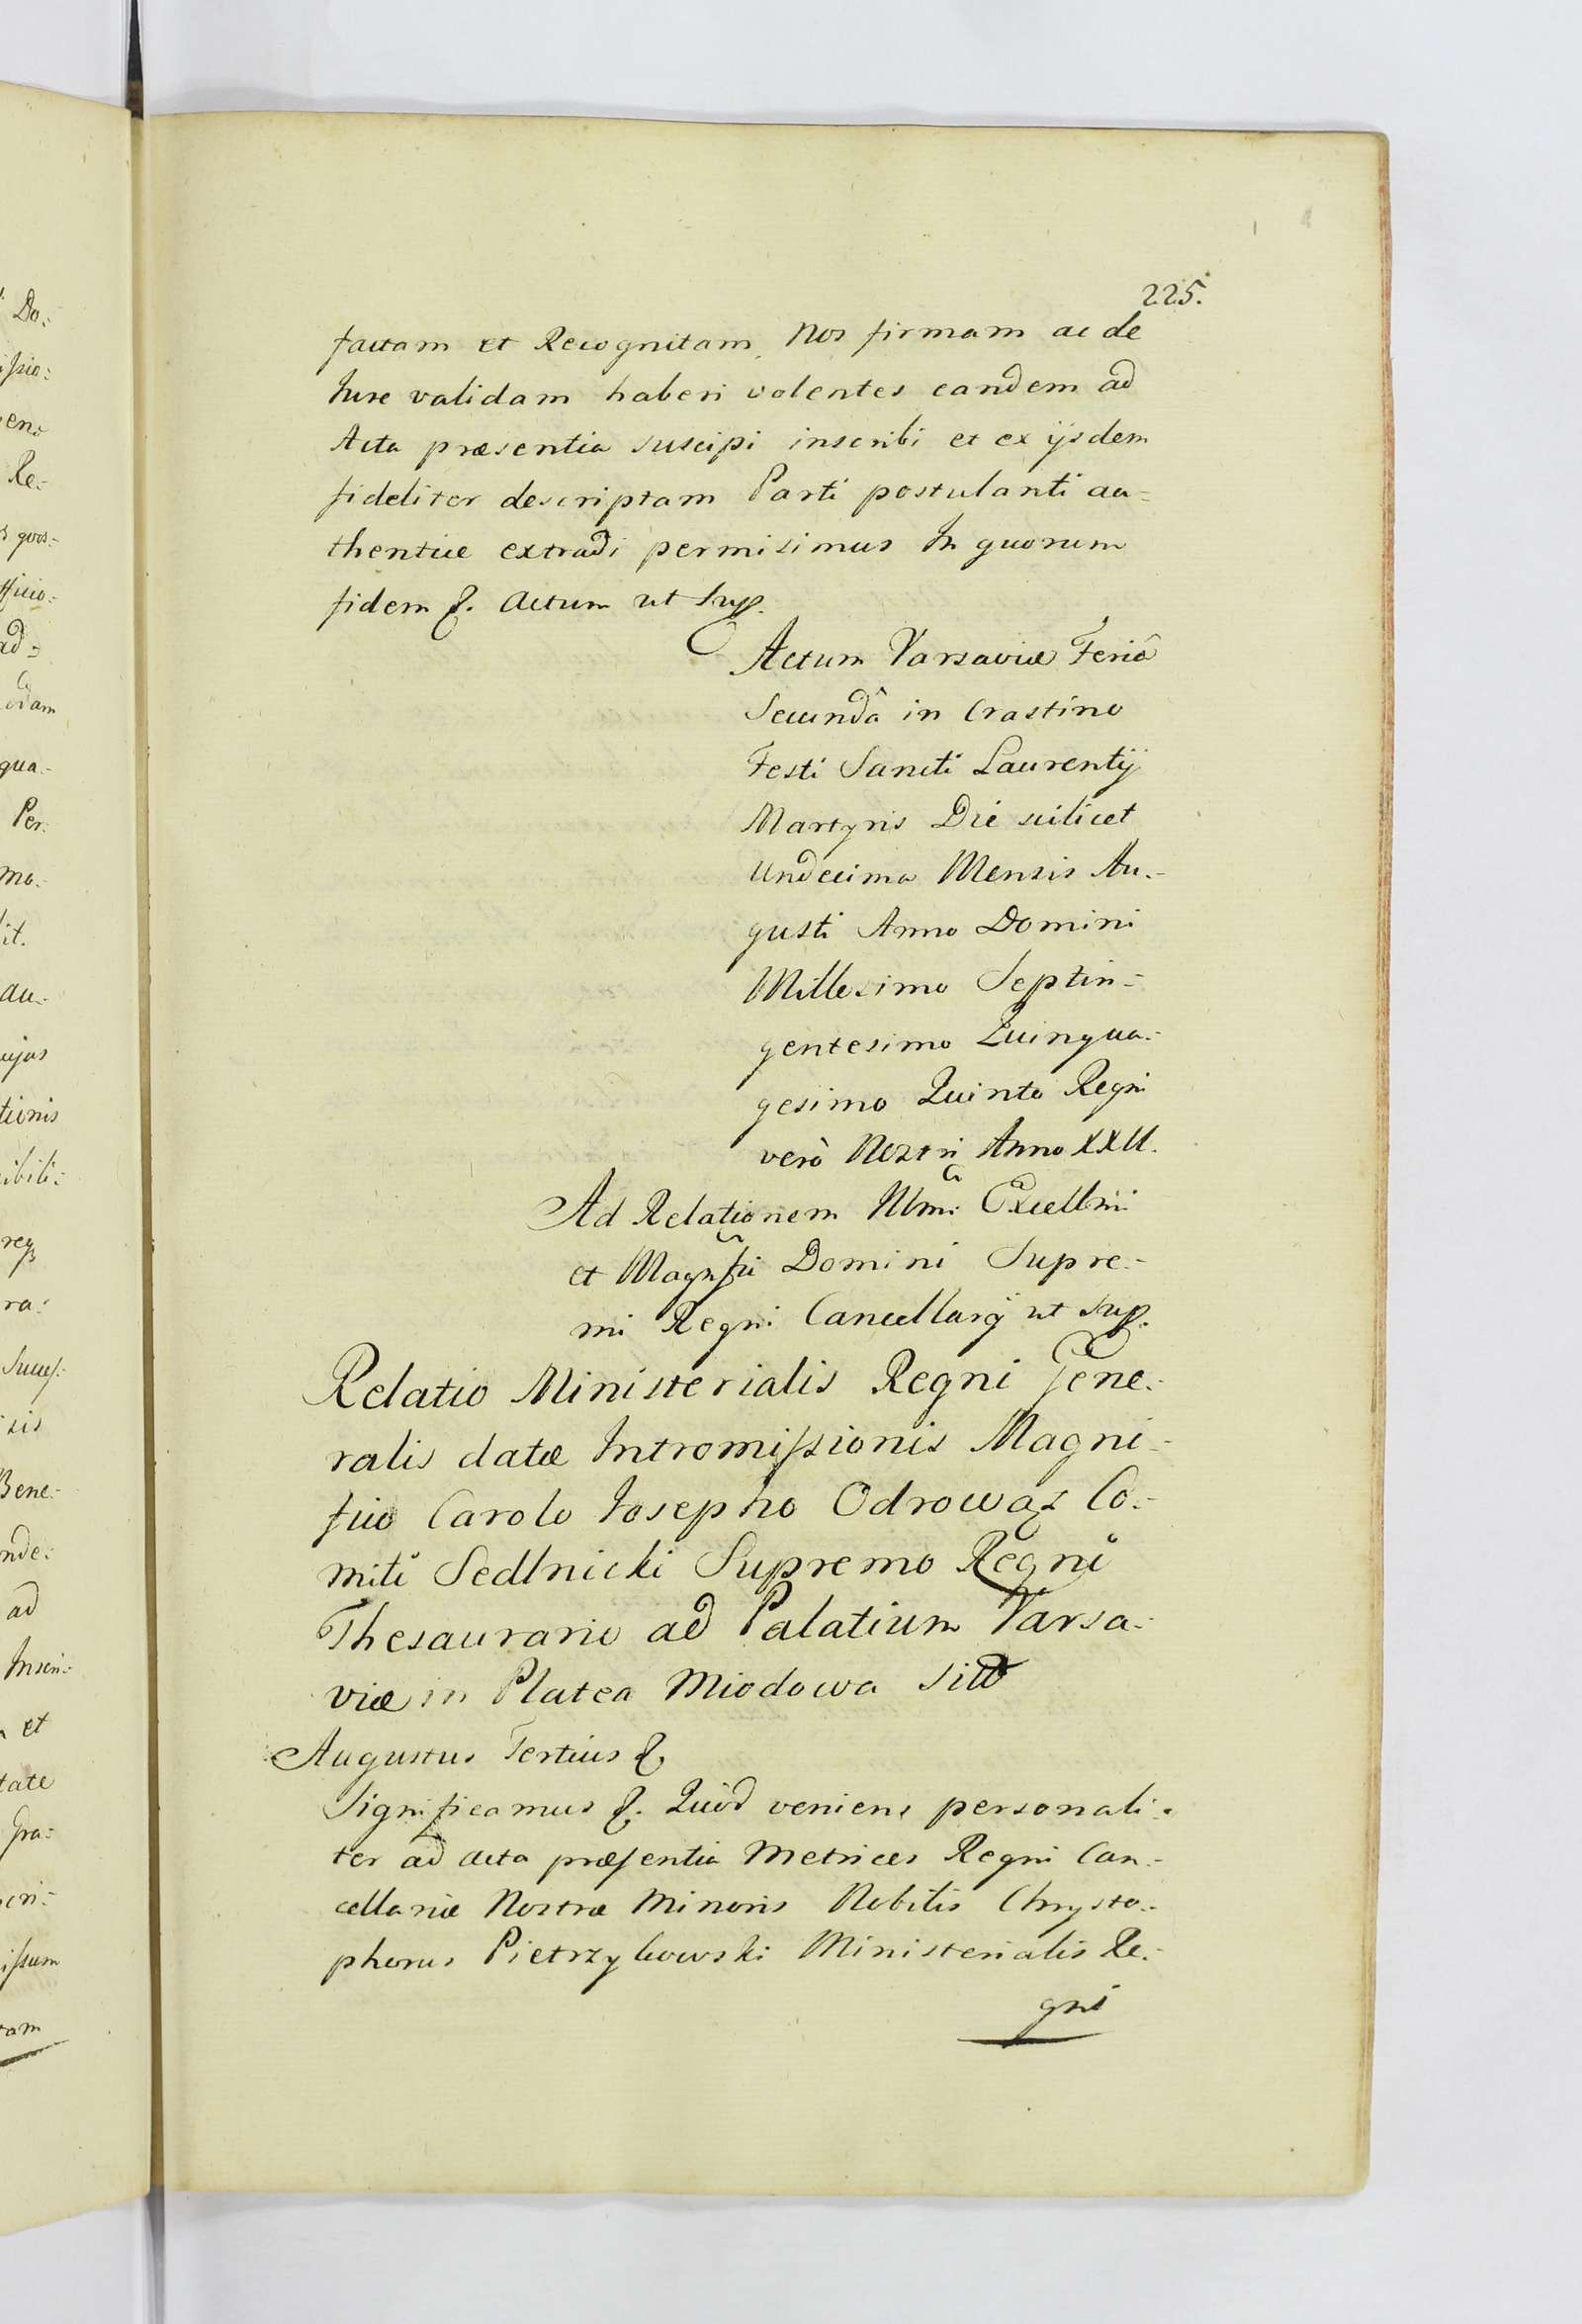 225.
factam et Recognitam, Nos firmam ac de
Iure validam haberi volentes eandem ad
Acta præsentia suscipi inscribi et ex ijsdem
fideliter descriptam Parti postulanti au=
thentice extradi permisimus In quorum
fidem &. Actum ut Sup.
Actum Varsaviæ Feriâ
Secundâ in Crastino
Festi Sancti Laurentij
Martyris Die scilicet
Undecima Mensis Au:-
gusti Anno Domini
Millesimo Septin:-
gentesimo Quinqua:-
gesimo Quinto Regni
verò Nostri Anno XXII.
Ad Relationem Illmi Excellmi
et Magnfci Domini Supre:-
mi Regni Cancellarij ut sup.
Relatio Ministerialis Regni Gene:-
ralis datæ Intromissionis Magni:-
fico Carolo Iosepho Odrowąz Co:-
miti Sedlnicki Supremo Regni
Thesaurario ad Palatium Varsa:-
viæ in Platea Miodowa
Augustus Tertius &
Significamus &. Quòd veniens personali:-
ter ad acta præsentia Metrices Regni Can:-
cellariæ Nostræ Minoris Nobilis Chrysto:-
phorus Pietrzykowski Ministerialis Re:-
gni
Do:
Re:
ad
qua:-
Per:
ma:-
it.
au:-
ra:
Bene:-
nde:
ad
et
tate
Gra: